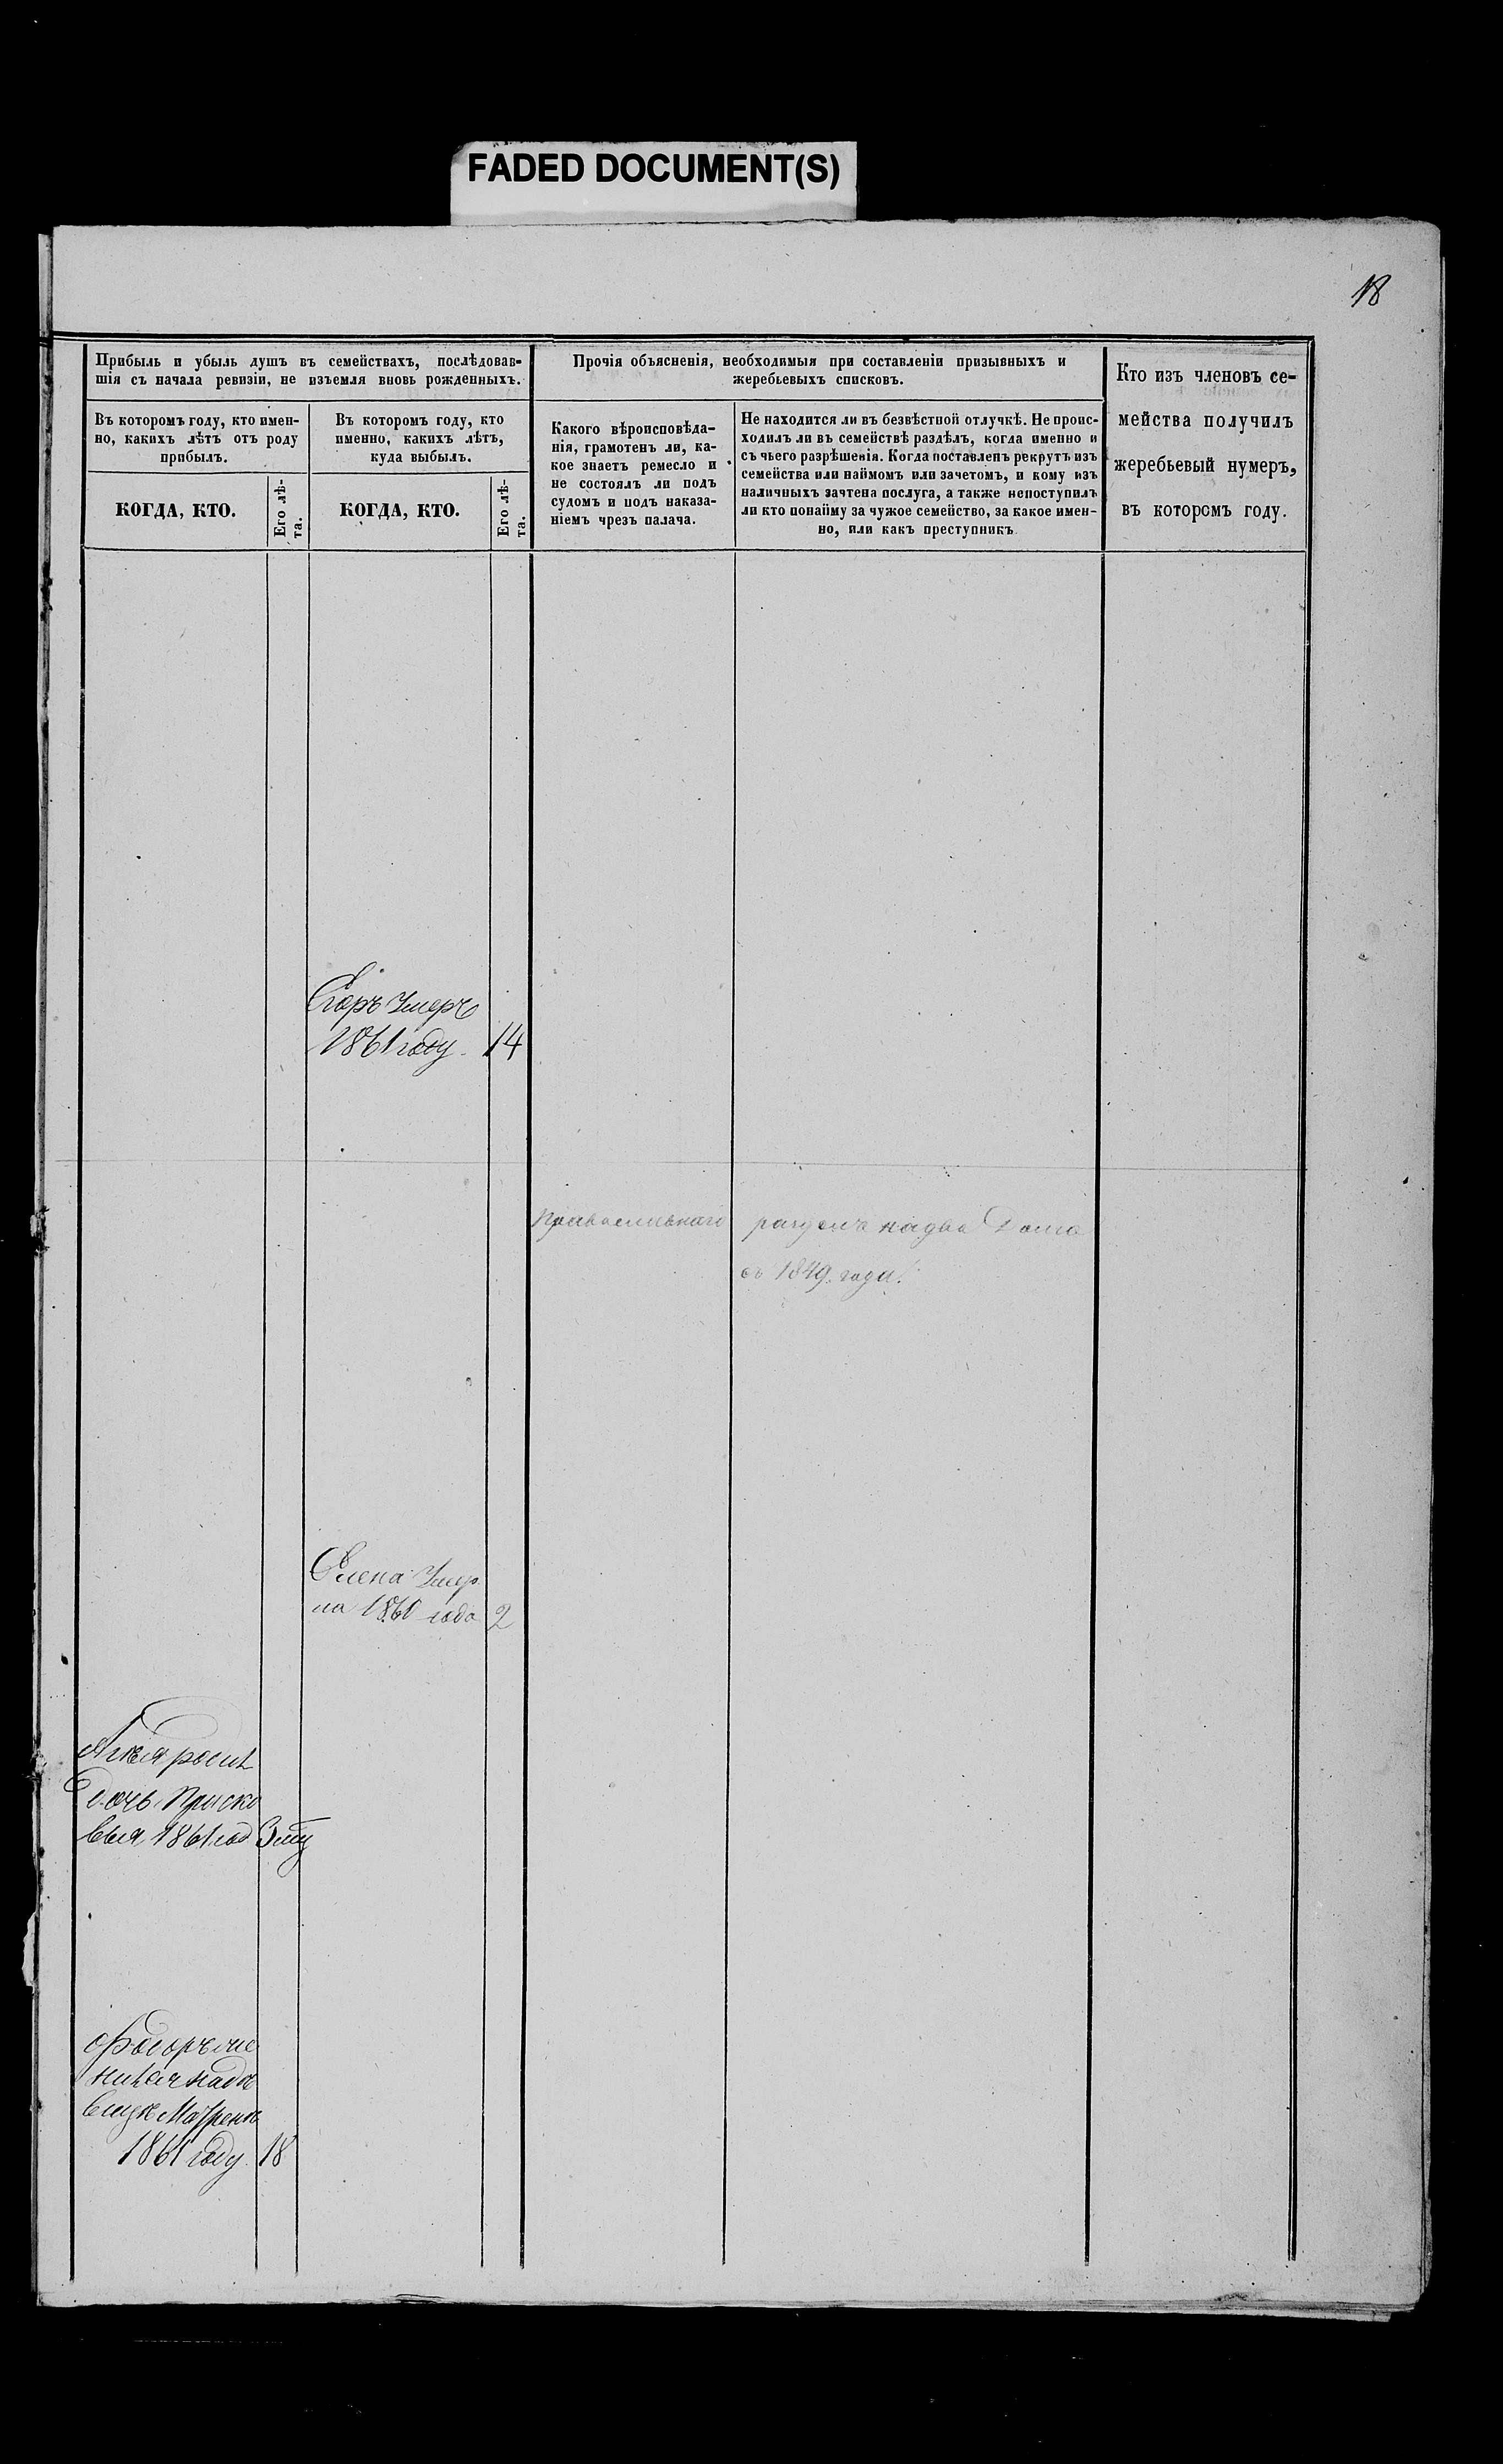 FADED DOCUMENT(S)
18
Прибыль и убыль душъ въ семействахъ, послѣдовав-
шія съ начала ревизіи, не изъемля вновь рожденныхъ.
Въ которомъ году, кто имен-
но, какихъ лѣтъ отъ роду
прибылъ.
КОГДА, КТО.
Его лѣ-
та.
Въ которомъ году, кто
именно, какихъ лѣтъ,
куда выбылъ.
КОГДА, КТО.
Его лѣ-
та.
Прочія объясненія, необходимыя при составленіи призывныхъ и
жеребьевыхъ списковъ.
Какого вѣроисповѣда-
нія, грамотенъ ли, ка-
кое знаетъ ремесло и
не состоялъ ли подъ
судомъ и подъ наказа-
ніемъ чрезъ палача.
Не находится ли въ безвѣстной отлучкѣ. Не проис-
ходилъ ли въ семействѣ раздѣлъ, когда именно и
съ чьего разрѣшенія. Когда поставленъ рекрутъ изъ
семейства или наймомъ или зачетомъ, и кому изъ
наличныхъ зачтена послуга, а также непоступилъ
ли кто понайму за чужое семейство, за какое имен-
но, или какъ преступникъ.
Кто изъ членовъ се-
мейства получилъ
жеребьевый нумеръ,
въ которомъ году.
Егоръ Умеръ
1861 году. 14
разделъ надва Дома
съ 1849. года.
Елена Умер
ла 1860 года 2
дочь Приско
вья 1861 год 3
Матрене
1861 году 18